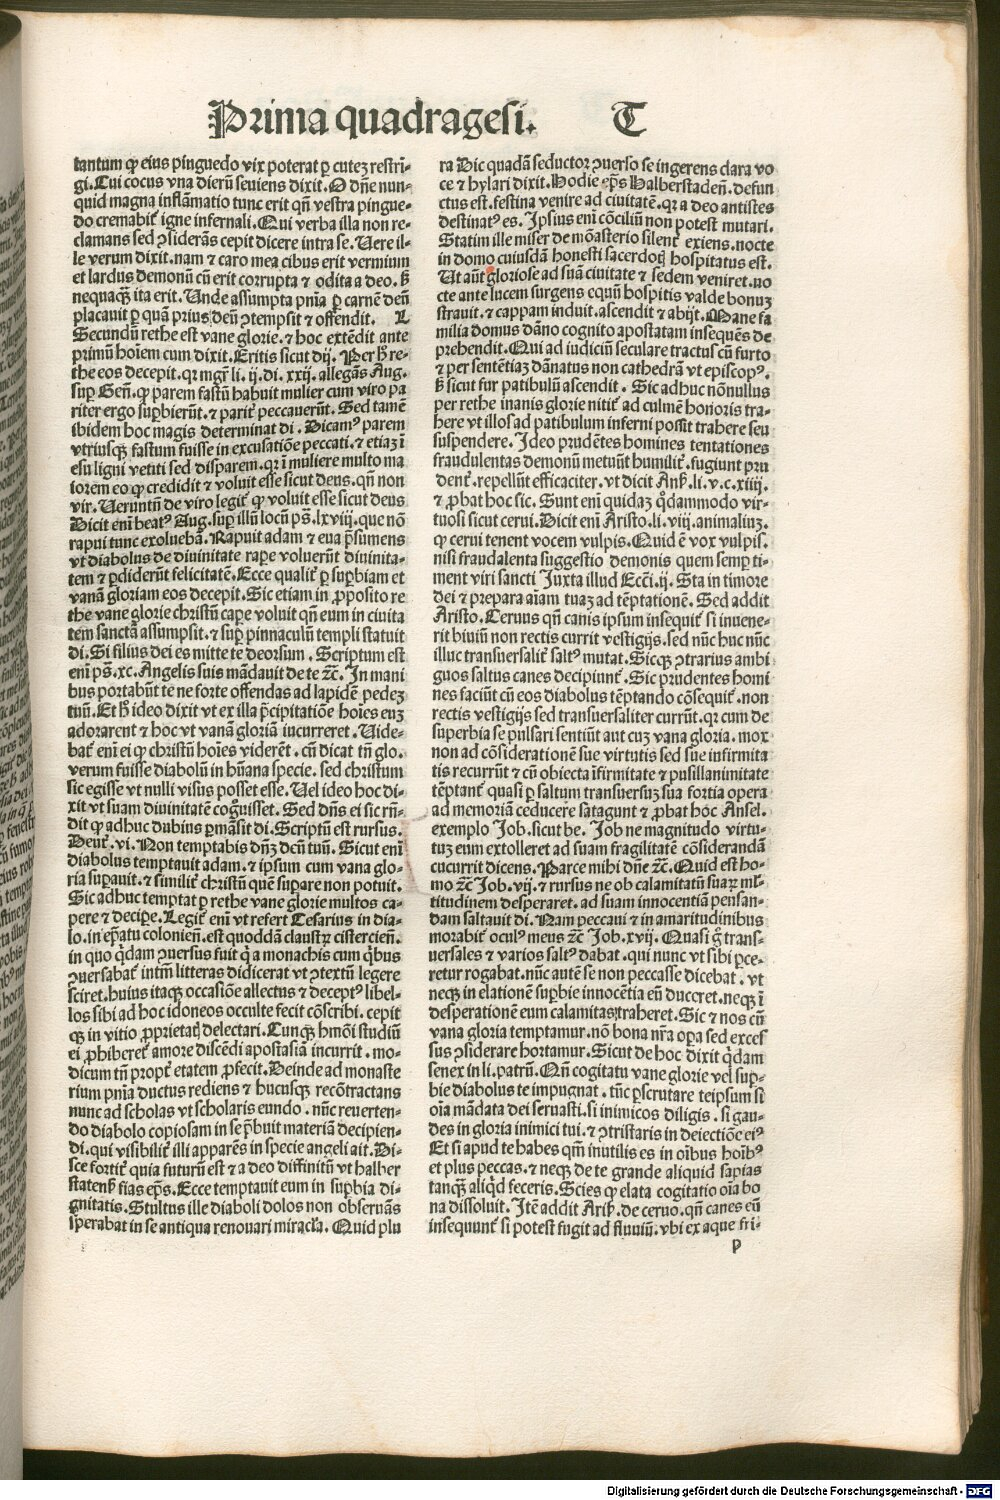 Prima quadragesi. T
tantum ꝙ eius pinguedo vix poterat ꝑ cuteʒ restrī-
gi. Cui cocus vna dierū seuiens dixit. O dn̄e nun-
quid magna inflāmatio tunc erit qn̄ vestra pingue-
do cremabit᷑ igne infernali. Qui verba illa non re-
clamans sed ꝯsiderās cepit dicere intra se. Uere il-
le verum dixit. nam ⁊ caro mea cibus erit vermium
et lardus demonū cū erit corrupta ⁊ odita a deo. ꝫ
nequaꝙ̄ ita erit. Unde assumpta pn̄ia ꝑ carnē deū
placauit ꝑ quā prius deū ꝯtempsit ⁊ offendit. L
Secundū rethe est vane glorie. ⁊ hoc extēdit ante
primū hoīem cum dixit. Eritis sicut dij. Per hͦ re-
the eos decepit. qꝛ mgr̄ li. ij. di. xxij. allegās Aug.
suꝑ Gen̄. ꝙ parem fastū habuit mulier cum viro pa
riter ergo suꝑbierūt. ⁊ parit᷑ peccauerūt. Sed tamē
ibidem hoc magis determinat di. Dicamꝰ parem
vtriusqꝫ fastum fuisse in excusatiōe peccati. ⁊ etiaʒ ī
esu ligni vetiti sed disparem. qꝛ ī muliere multo ma
iorem eo ꝙ credidit ⁊ voluit esse sicut deus. qn̄ non
vir. Ueruntn̄ de viro legit᷑ ꝙ voluit esse sicut deus
Dicit eni beatꝰ Aug. suꝑ illū locū ps̄. lxviij. que nō
rapui tunc exoluebā. Rapuit adam ⁊ eua p̄sumens
vt diabolus de diuinitate raꝑe voluerūt diuinita-
tem ⁊ ꝑdiderūt felicitatē. Ecce qualit᷑ ꝑ suꝑbiam et
vanā gloriam eos decepit. Sic etiam in ꝓposito re
the vane glorie christū caꝑe voluit qn̄ eum in ciuita
tem sanctā assumpsit. ⁊ suꝑ pinnaculū templi statuit
di. Si filius dei es mitte te deorsum. Scriptum est
eni ps̄. xc. Angelis suis mādauit de te ⁊c̄. In mani
bus portabūt te ne forte offendas ad lapidē pedeʒ
tuū. Et hͦ ideo dixit vt ex illa p̄cipitatiōe hoīes euʒ
adorarent ⁊ hoc vt vanā gloriā incurreret. Uide-
bat᷑ eni ei ꝙ christū hoīes viderēt. cū dicat tn̄ glo.
verum fuisse diabolū in hūana specie. sed christum
sic egisse vt nulli visus posset esse. Uel ideo hoc di-
xit vt suam diuinitatē coḡuisset. Sed dn̄s ei sic rn̄-
dit ꝙ adhuc dubius ꝑmāsit di. Scriptū est rursus.
Deut᷑. vi. Non temptabis dn̄ʒ deū tuū. Sicut eni
diabolus temptauit adam. ⁊ ipsum cum vana glo-
ria suꝑauit. ⁊ similit᷑ christū quē suꝑare non potuit.
Sic adhuc temptat ꝑ rethe vane glorie multos ca-
pere ⁊ deciꝑe. Legit᷑ eni vt refert Cesarius in dia-
lo. in ep̄atu colonien̄. est quoddā claustꝝ cistercien̄.
in quo q̇dam ꝯuersus fuit q̇ a monachis cum q̇bus
ꝯuersabat᷑ intm̄ litteras didicerat vt ꝯtextū legere
sciret. huius itaqꝫ occasiōe allectus ⁊ deceptꝰ libel-
los sibi ad hoc idoneos occulte fecit cōscribi. cepit
qꝫ in vitio ꝓprietatꝭ delectari. Cunqꝫ hm̄oi studiū
ei ꝓhiberet᷑ amore discēdi apostasiā incurrit. mo-
dicum tn̄ propt᷑ etatem ꝓfecit. Deinde ad monaste
rium pn̄ia ductus rediens ⁊ hucusqꝫ recōtractans
nunc ad scholas vt scholaris eundo. nūc reuerten-
do diabolo copiosam in se p̄buit materiā decipien-
di. qui visibilit᷑ illi apparēs in specie angeli ait. Di-
sce fortit᷑ quia futurū est ⁊ a deo diffinitū vt halber
statenẜ fias ep̄s. Ecce temptauit eum in suꝑbia di-
gnitatis. Stultus ille diaboli dolos non obseruās
sperabat in se antiqua renouari miracl̄a. Quid plu
ra Dic quadā seductor ꝯuerso se ingerens clara vo
ce ⁊ hylari dixit. Hodie ep̄s Halberstaden̄. defun
ctus est. festina venire ad ciuitatē. qꝛ a deo antistes
destinatꝰ es. Ipsius eni cōciliū non potest mutari.
Statim ille miser de mōasterio silent᷑ exiens. nocte
in domo cuiusdā honesti sacerdotꝭ hospitatus est.
Ut aūt gloriose ad suā ciuitate ⁊ sedem veniret. no
cte ante lucem surgens equū hospitis valde bonuʒ
strauit. ⁊ cappam induit. ascendit ⁊ abijt. Mane fa
milia domus dāno cognito apostatam insequēs de
prehendit. Qui ad iudiciū seculare tractus cū furto
⁊ per sentētiaʒ dānatus non cathedrā vt episcopꝰ.
ꝫ sicut fur patibulū ascendit. Sic adhuc nōnullus
per rethe inanis glorie nitit᷑ ad culmē honoris tra-
here vt illos ad patibulum inferni possit trahere seu
suspendere. Ideo prudētes homines tentationes
fraudulentas demonū metuūt humilit᷑. fugiunt pru
dent᷑. repellūt efficaciter. vt dicit Anẜ. li. v. c. xiiij.
⁊ ꝓbat hoc sic. Sunt eni quidaʒ q̇dammodo vir-
tuosi sicut cerui. Dicit eni Aristo. li. viij. animaliuʒ.
ꝙ cerui tenent vocem vulpis. Quid ē vox vulpis.
nisi fraudalenta suggestio demonis quem semꝑ ti-
ment viri sancti Juxta illud Ecc̄i. ij. Sta in timore
dei ⁊ prepara aīam tuaʒ ad tēptationē. Sed addit
Aristo. Ceruus qn̄ canis ipsum insequit᷑ si inuene-
rit biuiū non rectis currit vestigijs. sed nūc huc nūc
illuc transuersalit᷑ saltꝰ mutat. Sicqꝫ ꝯtrarius ambi
guos saltus canes decipiunt᷑. Sic prudentes homi
nes faciūt cū eos diabolus tēptando cōsequit᷑. non
rectis vestigijs sed transuersaliter currūt. qꝛ cum de
superbia se pulsari sentiūt aut cuʒ vana gloria. mox
non ad cōsiderationē sue virtutis sed sue infirmita
tis recurrūt ⁊ cū obiecta īfirmitate ⁊ pusillanimitate
tēptant᷑ quasi ꝑ saltum transuersuʒ sua fortia opera
ad memoriā reducere satagunt ⁊ ꝓbat hoc Ansel.
exemplo Job. sicut be. Job ne magnitudo virtu-
tuʒ eum extolleret ad suam fragilitatē cōsiderandā
cucurrit dicens. Parce mihi dn̄e ⁊c̄. Quid est ho-
mo ⁊c̄ Job. vij. ⁊ rursus ne ob calamitatū suaꝝ ml̄-
titudinem desperaret. ad suam innocentiā pensan-
dam saltauit di. Nam peccaui ⁊ in amaritudinibus
morabit᷑ oculꝰ meus ⁊c̄ Job. xvij. Quasi g̊ trans-
uersales ⁊ varios saltꝰ dabat. qui nunc vt sibi ꝑce-
retur rogabat. nūc autē se non peccasse dicebat. vt
neqꝫ in elationē suꝑbie innocētia eū duceret. neqꝫ ī
desperationē eum calamitas traheret. Sic ⁊ nos cū
vana gloria temptamur. nō bona nr̄a oꝑa sed exces
sus ꝯsiderare hortamur. Sicut de hoc dixit q̇dam
senex in li. patrū. Qn̄ cogitatu vane glorie vel suꝑ-
bie diabolus te impugnat. tūc ꝑscrutare teipsum si
oīa mādata dei seruasti. si inimicos diligis. si gau-
des in gloria inimici tui. ⁊ ꝯtristaris in deiectiōe eiꝰ
Et si apud te habes qm̄ inutilis es in oībus hoībꝰ
et plus peccas. ⁊ neqꝫ de te grande aliquid sapias
tanqꝫ aliq̇d feceris. Scies ꝙ elata cogitatio oīa bo
na dissoluit. Itē addit Ariẜ. de ceruo. qn̄ canes eū
insequunt᷑ si potest fugit ad fluuiū. vbi ex aque fri-
p
Digitalisierung gefördert durch die Deutsche Forschungsgemeinschaft - DFG